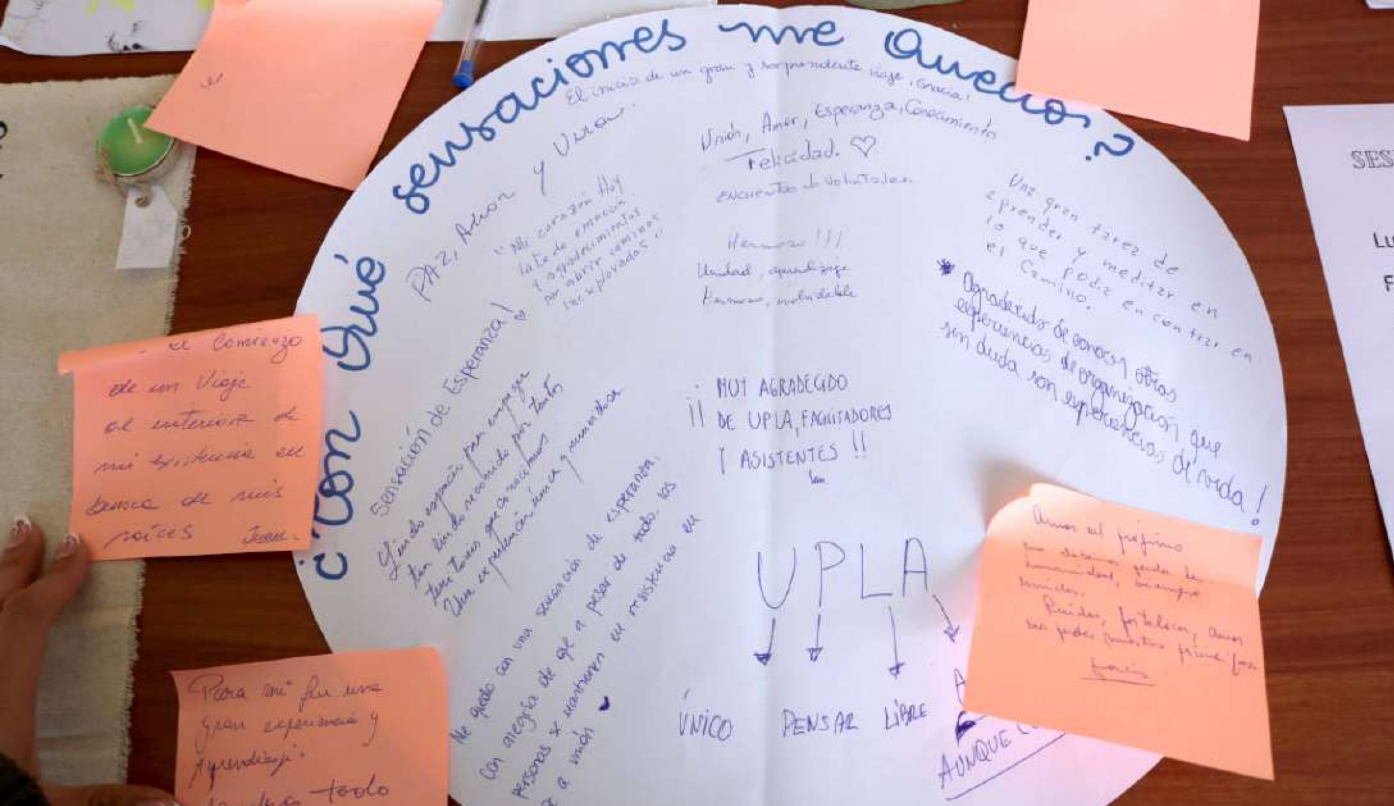 ¿Con qué sensaciones me quedo?
El inicio de un gran y sorprendente viaje, Gracia!
PAZ, Amor y
Unión, Amor, Esperanza, Conocimiento
Felicidad. ♡
encuentro de voluntades
"Mi corazón Hoy
late de emoción
y agradecimientos
por abrir caminos
inexplorados"
Hermoso!!!
Unidad, aprendizaje
Hermoso, inolvidable
Una gran tarea de
aprender y meditar en
lo que podía encontrar en
el Camino.
* Agradecido de conocer otras
experiencias de organización que
sin duda son experiencias de vida!
Sensación de Esperanza! ♡
Lindo espacio para empezar
tan lindo recorrido por tantos
territorios que conocimos
Una experiencia única y
¡ MUY AGRADECIDO
¡¡ DE UPLA, FACILITADORES
Y ASISTENTES !!
Me quedo con una sensación de esperanza.
Con alegría de qe a pesar de todo. las
personas se mantienen en resistencia en
a unión
UPLA
ÚNICO PENSAR LIBRE A
AUNQUE
el
el Comienzo
de un Viaje
al interior de
mi existencia en
busca de mis
raíces Juan.
Para mi fue una
gran experiencia y
Aprendizaje
todo
Amor al prójimo
humanidad, siempre
unidos.
gracias
SES
LU
F